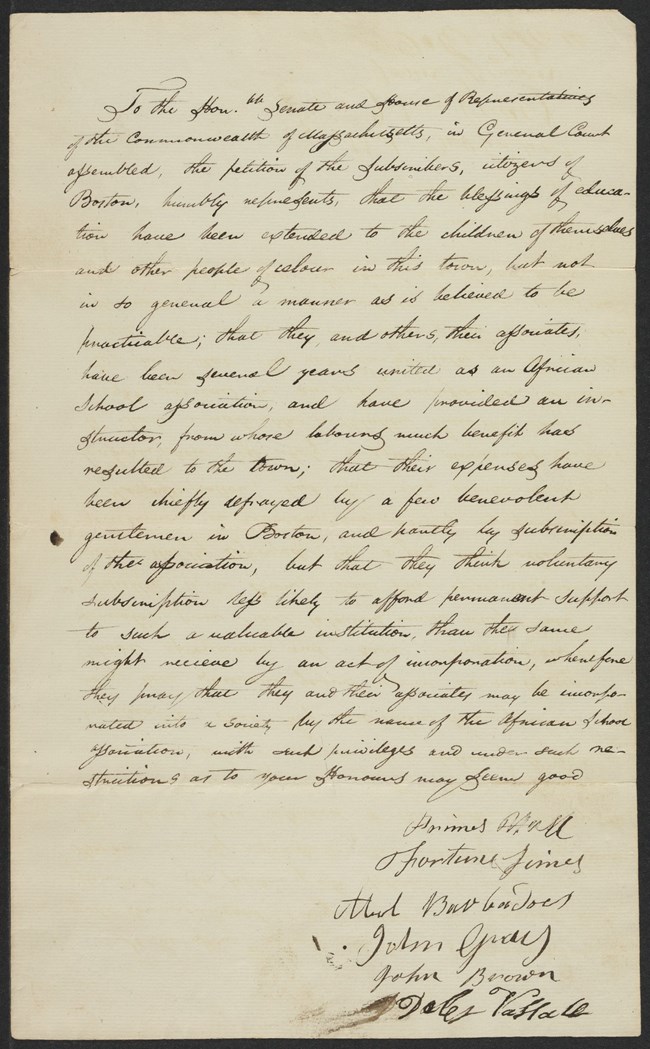 To the Hon.ble Senate and House of Representatives
of the Commonwealth of Massachusetts, in General Court
assembled, the petition of the Subscribers, citizens of
Boston, humbly represents, that the blessings of educa-
tion have been extended to the children of themselves
and other people of colour in this town, but not
in so general a manner as is believed to be
practicable; that they, and others, their associates,
have been several years united as an African
School association, and have provided an in-
structor, from whose labours much benefit has
resulted to the town; that their expenses have
been chiefly defrayed by a few benevolent
gentlemen in Boston, and partly by subscription
of the association, but that they think voluntary
subscription less likely to afford permanent support
to such a valuable institution, than the same
might recieve by an act of incorporation, wherefore
they pray that they and their associates may be incorpo-
rated into a Society by the name of the African School
association, with such privileges and under such re-
strictions as to your Honours may seem good
Primes Hall
Fortune Simes
Abel Barbadoes
John Gray
John Brown
Vassall